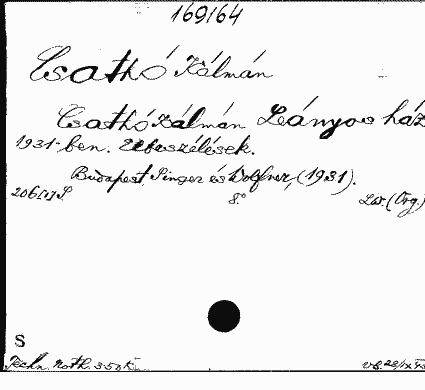 169/64
Csathó Kálmán
Csathó Kálmán Leányos ház
1931-ben. Elbeszélések.
Budapest, Singer és Wolfner, (1931).
206 [1] S. 8° Lw. (Org.)
S
Techn. Noth. 3531